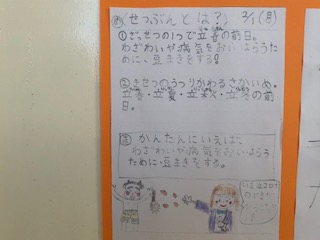 (せつぶんとは?) 2/1(月)
①ざっせつの1つで立春の前日。
わざわいや病気をおいはらうた
めに、豆まきをする!
②きせつのうつりかわるさかいめ。
立春・立夏・立秋・立冬の前
日。
かんたんにいえば、
わざわいや病気をおいはらう
ために、豆まきをする。